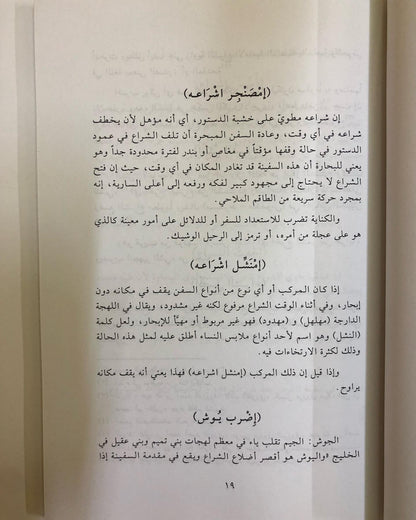 (إمْصَنْجِر اشْرَاعه)
إن شراعه مطويّ على خشبة الدستور، أي أنه مؤهل لأن يخطف
شراعه في أي وقت، وعادة السفن المبحرة أن تلف الشراع في عمود
الدستور في حالة وقفها مؤقتاً في مغاص أو بندر لفترة محدودة جداً وهو
يعني للبحارة أن هذه السفينة قد تغادر المكان في أي وقت، حيث إن فتح
الشراع لا يحتاج إلى مجهود كبير لفكه ورفعه إلى أعلى السارية، إنه
بمجرد حركة سريعة من الطاقم الملاحي.
والكناية تضرب للاستعداد للسفر أو للدلائل على أمور معينة كالذي
هو على عجلة من أمره، أو ترمز إلى الرحيل الوشيك.
(إمْنَشِّل اشْرَاعه)
إذا كان المركب أو أي نوع من أنواع السفن يقف في مكانه دون
إبحار، وفي أثناء الوقت الشراع مرفوع لكنه غير مشدود، ويقال في اللهجة
الدارجة (مهلهل) و (مهدود) فهو غير مربوط أو مهيّأ للإبحار، ولعل كلمة
(النشل) وهو إسم لأحد أنواع ملابس النساء أطلق عليه لمثل هذه الحالة
وذلك لكثرة الارتخاءات فيه.
وإذا قيل إن ذلك المركب (إمنشل اشراعه) فهذا يعني أنه يقف مكانه
يراوح.
(إضْرب يُوش)
الجوش: الجيم تقلب ياء في معظم لهجات بني تميم وبني عقيل في
الخليج «واليوش هو أقصر أضلاع الشراع ويقع في مقدمة السفينة إذا
١٩